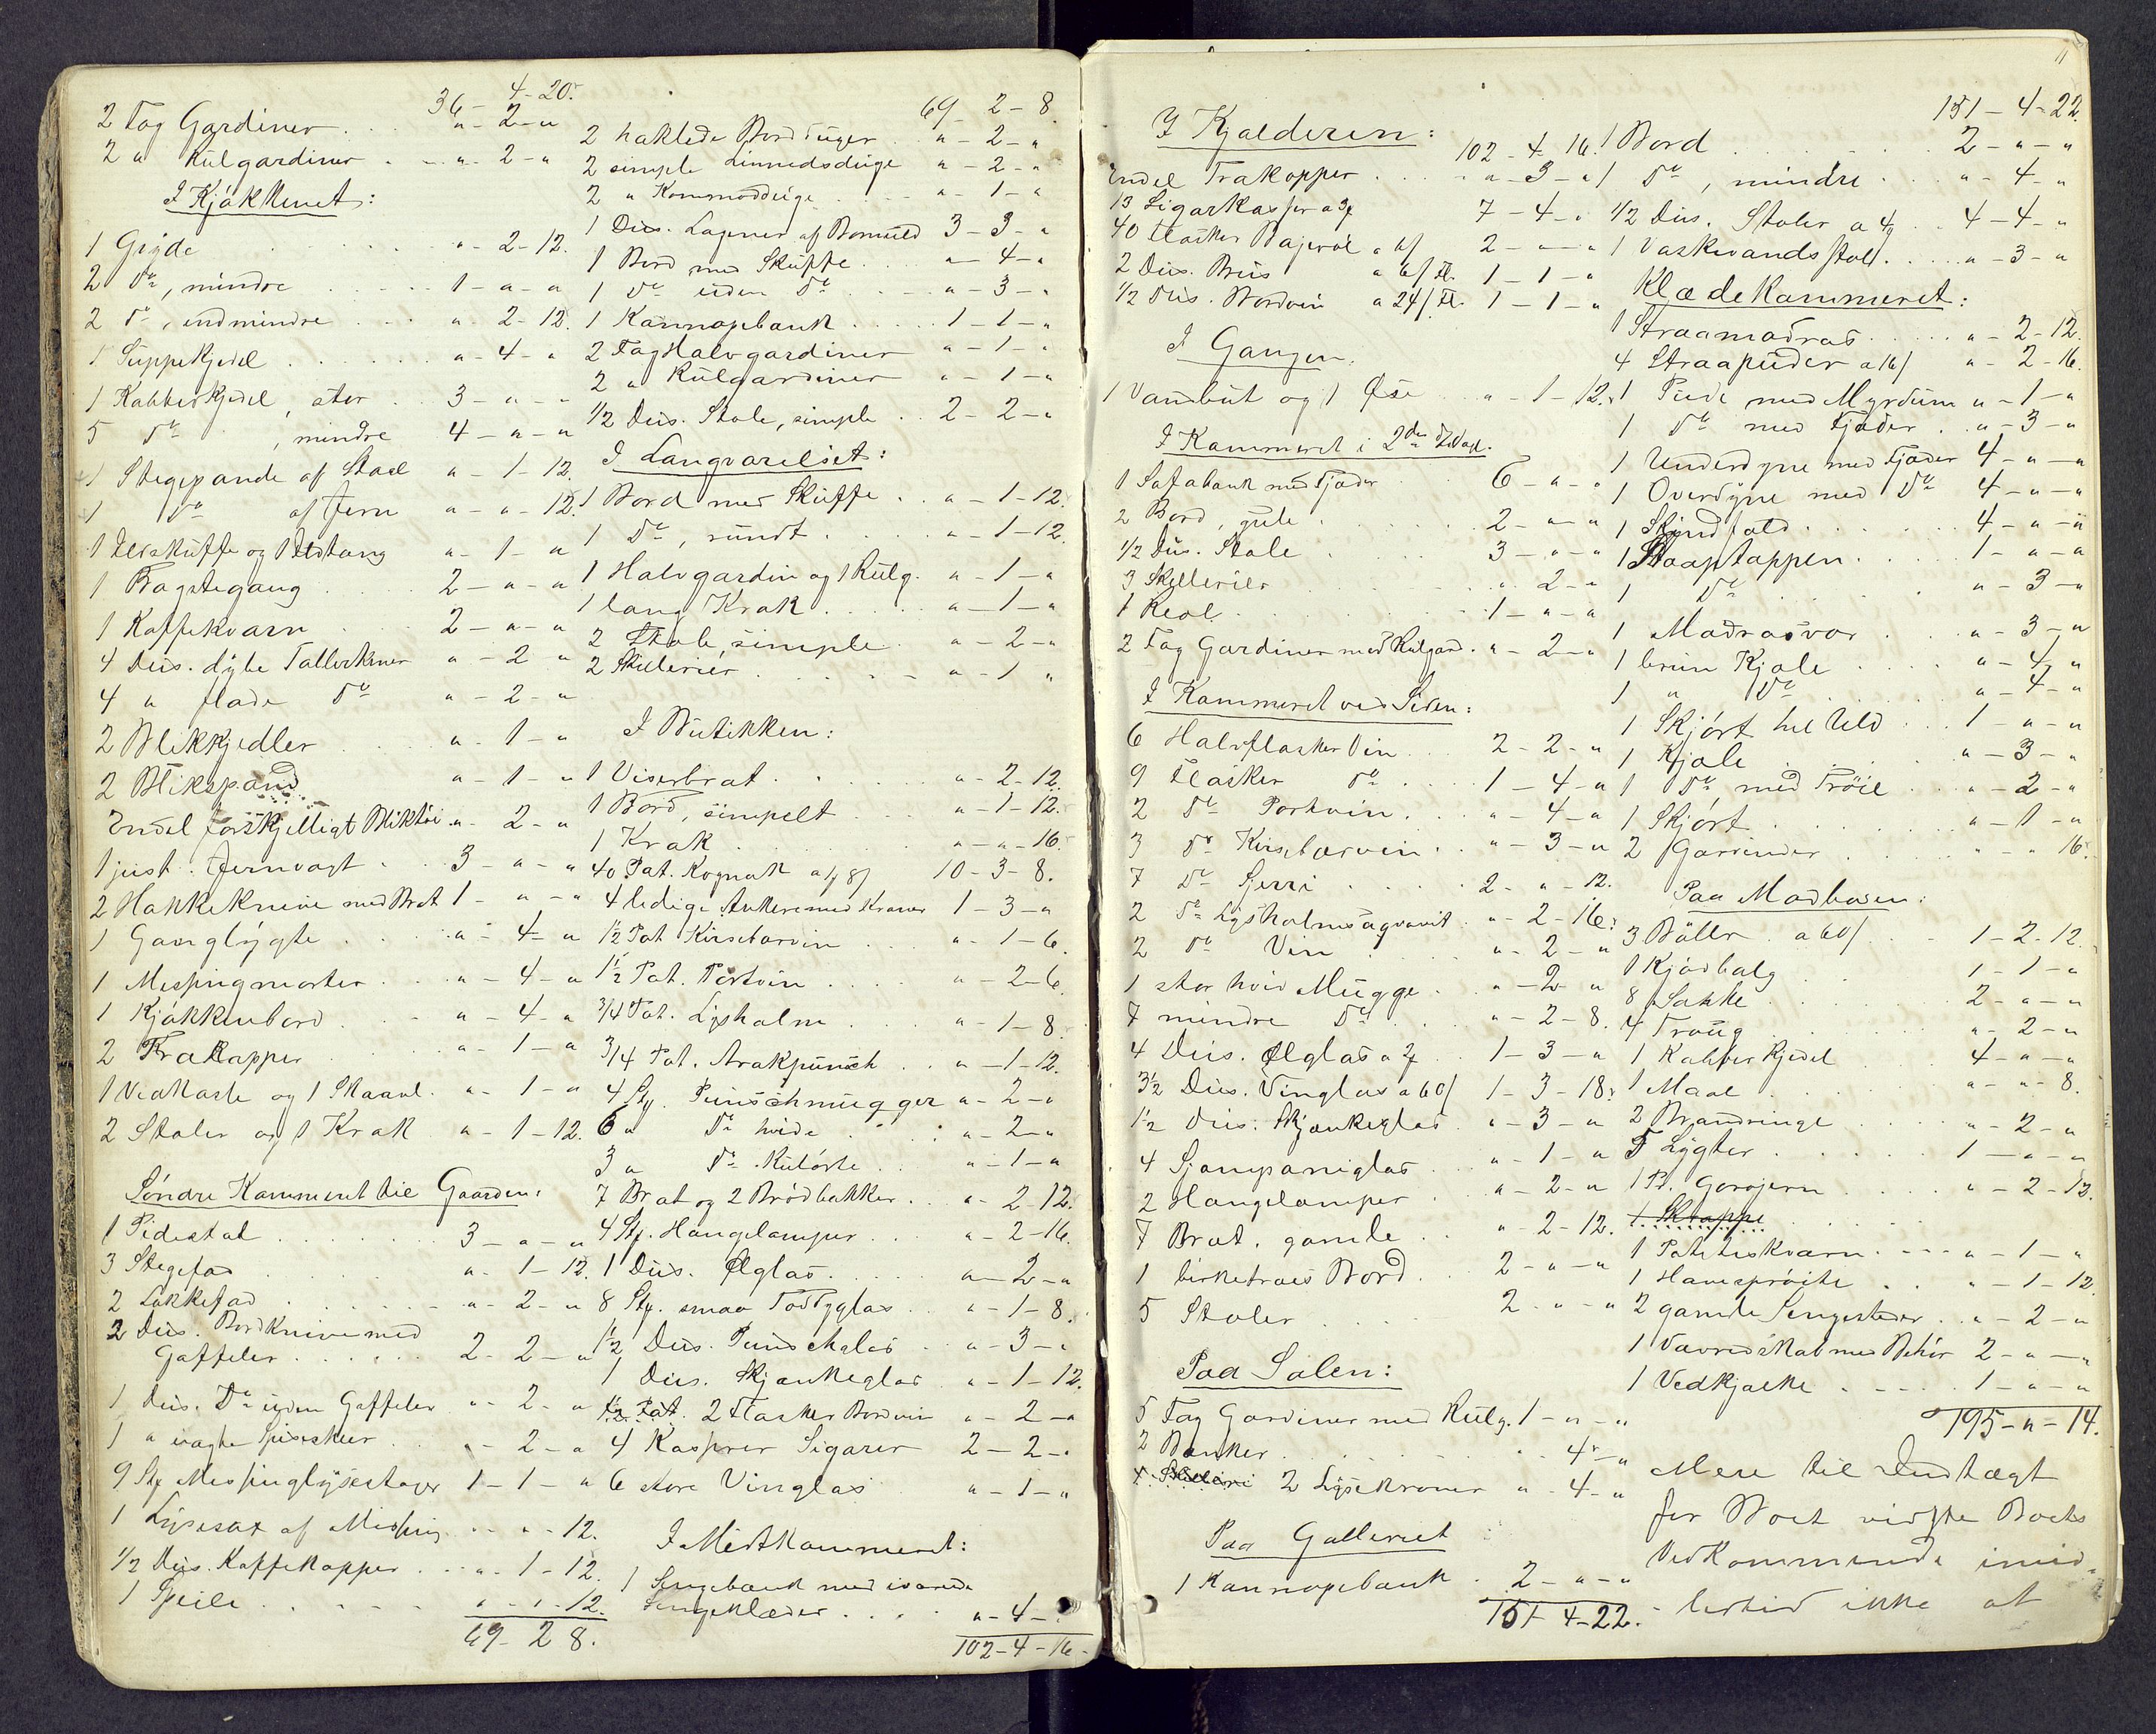 36 - 4 - 20.
2 Fag Gardiner . . . " - 2 - "
2 " Rulgardiner . . " - 2 - "
I Kjøkkenet:
1 Gryde . . . . . " - 2 - 12.
2 Do, mindre . . . . 1 - " - "
2 Do, endmindre . . . " - 2 - 12.
1 Suppekjedel . . . . " - 4 - "
1 Kabberkjedel, stor . . 3 - " - "
5 Do , mindre 4 - " - "
1 Stegepande af Staal " - 1 - 12.
1 Do af Jern " - " - 12.
1 Ildskuffe og 1 Ildtang " - 1 - "
1 Bagstegang . . . 2 - " - "
1 Kaffekvarn . . . 2 - " - "
4 Dus. dybe Tallerkener " - 2 - "
4 " flade Do " - 2 - "
2 Blikkjedler . . . " - 1 - "
2 Blikspand " - 1 - "
Endel forskjelligt Bliktøi . " - 2 - "
1 just. Jernvagt . . 3 - " - "
2 Hakkeknive med Brat 1 - " - "
1 Ganglygte . . . " - 4 - "
1 Messingmorter . . . " - 4 - "
1 Kjøkkenbord . . . " - 4 - "
2 Trakapper . . . " - 1 - "
1 Vedkasse og 1 Skaarl. " - 1 - "
2 Stoler og 1 Krak " - 1 - 12.
Søndre Kammeret til Gaarden:
1 Pidestal . . . . 3 - " - "
3 Stegefad . . . . " - 1 - 12.
2 Lokkefad . . . . " - 2 - "
2 Dus. Bordknive med
Gaffeler . . . . . 2 - 2 - "
1 Dus. Do uden Gaffeler " - 2 - "
1 " uagte Spiseskeer . . " - 2 - "
9 Sty. Messinglysestager 1 - 1 - "
1 Lysesax af Messing . . " - " - 12.
1/2 Dus. Kaffekopper . . " - 1 - 12.
1 Speile . . . . . " - " - 12.
69 - 2 8.
69 - 2 - 8.
2 haklede Bordduger . . " - 2 - "
2 simple Linnedsduge " - 2 - "
2 " Kommodduge . . . " - 1 - "
1 Dus. Lagener af Bomuld 3 - 3 - "
1 Bord med Skuffe . . " - 4 - "
1 Do uden Do . . . " - 3 - "
1 Kannapebank . . . . 1 - 1 - "
2 Fag Halvgardiner " - 1 - "
2 " Rulgardiner " - 1 - "
1/2 Dus. Stole, simple . . 2 - 2 - "
I Langvarelset:
1 Bord med Skuffe . . " - 1 - 12.
1 Do, rundt . . . . " - 1 - 12.
1 Halvgardin og 1 Rulg. " - 1 - "
1 lang Krak . . . . " - 1 - "
2 Stole, simple . " - 2 - "
2 Skilerier . . . . " - 1 "
I Butikken:
1 Viserbrat . . . " - 2 - 12.
1 Bord, simpelt . . . " - 1 - 12.
1 Krak . . . . . " - " - 16.
40 Pot. Kognak 10 - 3 - 8.
4 ledige Ankere med Kraner 1 - 3 - "
1/2 Pot Kirsebarvin . . " - 1 - 6.
1 1/2 Pot. Portvin . . . " - 2 - 6.
3/4 Pot. Lysholm . . . " - 1 - 8.
3/4 Pot. Arakpunsch . . " - 1 - 12.
4 Sty. Punschmugger " - 2 - "
6 " Do hvide . . . " - 2 - "
3 " Do . Kulørte . . " - 1 - "
7 Brat og 2 Brødbakker . . " - 2 12.
4 Sty. Hangelamper . . . " - 2 - 16.
1 Dus. Ølglas . . . . " - 2 - "
8 Sty. smaa Toddyglas . . " - 1 - 8.
1/2 Dus. Punschglas . . " - 3 - "
1 Dus. Skjankeglas " - 1 - 12.
1/2 Pot. 2 Flasker Bordvin " - 2 - "
4 Kasser Sigarer 2 - 2 - "
6 store Vinglas . " - 1 - "
I Midtkammeret:
1 Sengebank med ivarende
Sengeklæder . . . . " - 4 - "
102 - 4 - 16.
11
I Kjalderen: 102 - 4 - 16.
Endel Trakopper . . . . " - 3 - "
13 Sigarkasser 7 - 4 - "
40 Flasker Bajerøl 2 - " - "
2 Dus. Brus a 6/ Fl. 1 - 1 - "
1/2 Dus. Bordvin a 24/ Fl. 1 - 1 - "
I Gangen.
1 Vandbut og 1 Øse " - 1 - 12.
I Kammeret i 2den Etage.
1 Sofabank med Fjader 6 - " - "
2 Bord, gule . . . . 2 - " - "
1/2 Dus. Stole . . . 3 - " - "
3 Skillerier . . . . " - 2 - "
1 Reol . . . . . 1 - " - "
2 Fag Gardiner med Rulgard. " - 2 - "
I Kammeret ved Siden:
6 Halvflasker Vin . . . 2 - 2 - "
9 Flasker Do . . . . 1 - 4 - "
2 Do Portvin . . . " - 4 - "
3 Do Kirsebarvin . . " - 3 - "
7 Do Sjerri . . . . 2 - " - 12.
2 Do Lysholmsagvavit . " - 2 - 16.
2 Do Vin . . . . " - 2 - "
1 stor hvid Mugge . . " - 2 - "
7 mindre Do . . . " - 2 - 8.
4 Dus. Ølglas . 1 - 3 - "
3 1/2 Dus. Vinglas a 60/ 1 - 3 - 18.
1 1/2 Dus. Skjankeglas . " - 3 - "
4 Sjampaniglas . . " - 1 - "
2 Hangelamper . " - 2 - "
7 Brat, gamle . . " - 2 - 12.
1 birketraes Bord . 2 - " - "
5 Stoler . . . . 2 - " - "
Paa Salen:
5 Fag Gardiner med Rulg. 1 - " - "
2 Banker . . . . . " 4 - "
2 Lysekroner " - 4 - "
Paa Galleriet
1 Kannapebank . 2 - " - "
151 - 4 - 22.
151 - 4 - 22.
1 Bord . . . . . . 2 - " - "
1 Do, mindre . . . " - 4 - "
1/2 Dus. Stoler . . 4 - 4 - "
1 Vaskevandsstoll . . . . " - 3 - "
Klædekammeret:
1 Straamadras . . . . " - 2 - 12.
4 Straapuder a 16/ " - 2 - 16.
1 Pude med Myrdun " - 1 - "
1 Do med Fjader . . " - 3 - "
1 Underdyne med Fjader 4 - " - "
1 Overdyne med Do 4 - " - "
1 Skindfeld . . . . 4 - " - "
1 Slaaptappen . . 1 - " - "
1 Do . . . . " - 3 - "
1 Madrasvor . . . " - 3 - "
1 brun Kjole . . . " - 4 - "
1 " Do . . . . " - 4 - "
1 Skjørt hel Uld . . 1 - " - "
1 Kjole . . . . " - 3 - "
1 Do med Trøie . . " - 2 - "
1 Skjørt . . . . . " - 1 - "
2 Garvinder . . . . " - " 16.
Paa Madboden:
3 Bøller . a 60/ . . 1 - 2 - 12.
1 Kjødbalg . . 1 - 1 - "
8 Sakke . . . . . 2 - " - "
4 Traug . . . . . " - 2 - "
1 Kabberkjedel . . . 4 - " - "
1 Maal . . . . . " - " - 8.
2 Brandringe . . . " - 2 - "
5 Lygter . . . . . 1 - " - "
1 Pr. Gorojern . . . . " - 2 - 12.
1 Skrappe . . . . . .
1 Poteteskvarn . - - - " - 1 - "
1 Havesprøite . . . " - 1 - 12.
2 gamle Sengesteder . . " - 2 - "
1 Vavredskab med Behør 2 - " - "
1 Vedkjalke . . - - . . 1 - " - "
195 - " - 14.
Mere til Indtægt
for Boet vidste Boets
Vedkommende imid-
lertid ikke at